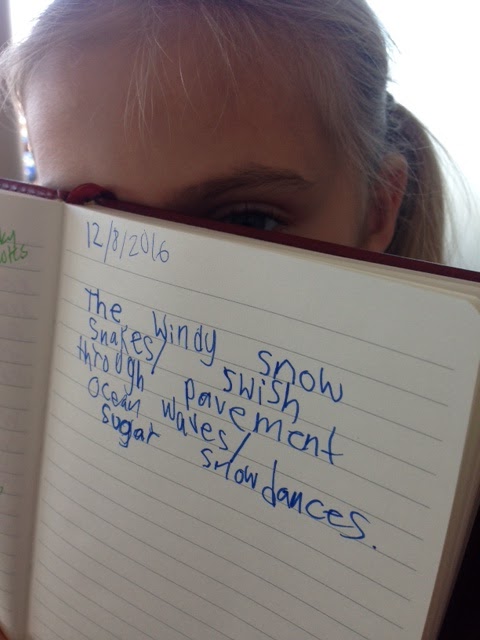 12/8/2016
The windy snow
snakes/ swish
through pavement
ocean waves/
sugar snow dances.